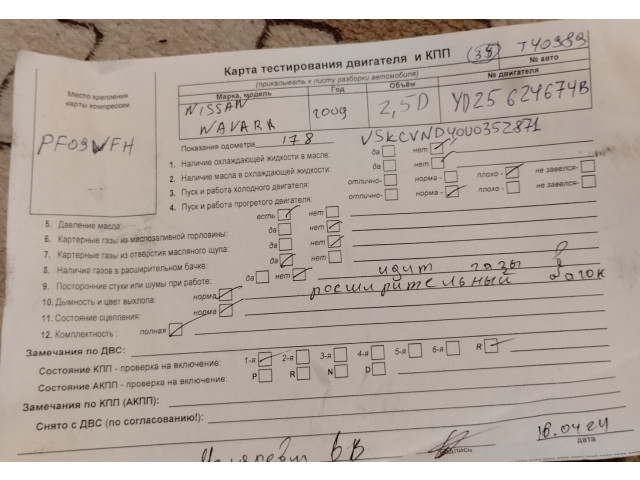 Карта тестирования двигателя и КПП (35) Т40983
(прикалывать к листу разборки автомобиля) № авто
Место крепления карты компрессии
Марка, модель Год Объём № двигателя
NISSAN NAVARA 2009 2,5D YD25 624674B
PF09WFH
Показания одометра 178 VSKCVND40U0352871
1. Наличие охлаждающей жидкости в масле: да нет
2. Наличие масла в охлаждающей жидкости: да нет
3. Пуск и работа холодного двигателя: отлично- норма - плохо - не завелся-
4. Пуск и работа прогретого двигателя: отлично- норма - плохо - не завелся-
5. Давление масла: есть нет
6. Картерные газы из маслозаливной горловины: да нет
7. Картерные газы из отверстия масляного щупа: да нет
8. Наличие газов в расширительном бачке: да нет
9. Посторонние стуки или шумы при работе: да нет идит газы в
10. Дымность и цвет выхлопа: норма росширительный бачок
11. Состояние сцепления: норма
12. Комплектность : полная
Замечания по ДВС:
Состояние КПП - проверка на включение: 1-я 2-я 3-я 4-я 5-я 6-я R
Состояние АКПП - проверка на включение: P R N D
Замечания по КПП (АКПП):
Снято с ДВС (по согласованию!):
ВВ 18.04.24
подпись дата